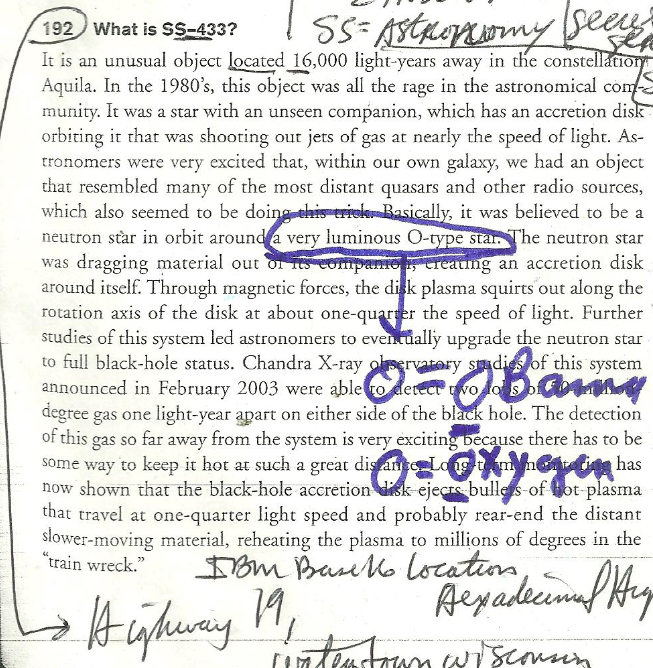 192 What is SS-433?
SS= Astronomy
It is an unusual object located 16,000 light-years away in the constellation
Aquila. In the 1980's, this object was all the rage in the astronomical com-
munity. It was a star with an unseen companion, which has an accretion disk
orbiting it that was shooting out jets of gas at nearly the speed of light. As-
tronomers were very excited that, within our own galaxy, we had an object
that resembled many of the most distant quasars and other radio sources,
which also seemed to be doing this trick. Basically, it was believed to be a
neutron star in orbit around a very luminous O-type star. The neutron star
was dragging material out of its companion, creating an accretion disk
around itself. Through magnetic forces, the disk plasma squirts out along the
rotation axis of the disk at about one-quarter the speed of light. Further
studies of this system led astronomers to eventually upgrade the neutron star
to full black-hole status. Chandra X-ray observatory studies of this system
O=OBama
announced in February 2003 were able to detect two lobes of 50 million
degree gas one light-year apart on either side of the black hole. The detection
of this gas so far away from the system is very exciting because there has to be
some way to keep it hot at such a great distance. Long-term monitoring has
O=oxygen
now shown that the black-hole accretion disk ejects bullets of hot plasma
that travel at one-quarter light speed and probably rear-end the distant
slower-moving material, reheating the plasma to millions of degrees in the
"train wreck."
IBm Base16 Location
Hexadecimal
Highway 19,
watertown wisconsin